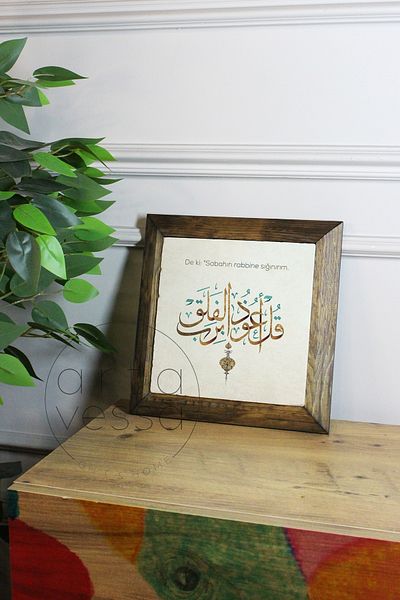 De ki: "Sabahın rabbine sığınırım.
قُلْ أَعُوذُ بِرَبِّ الْفَلَقِ
arta
vessa